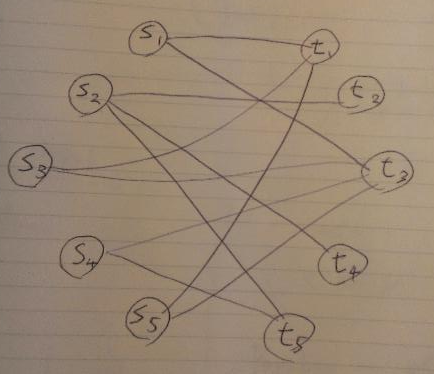 s₁ t₁
s₂ t₂
s₃ t₃
s₄ t₄
s₅ t₅